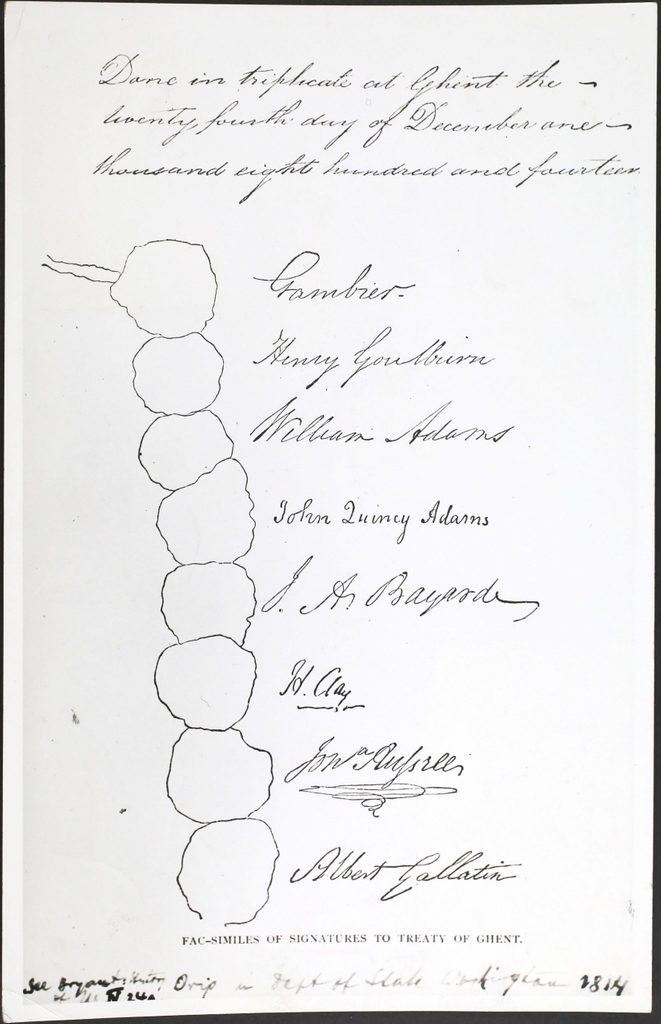 Done in triplicate at Ghent the
twenty fourth day of December one
thousand eight hundred and fourteen
Gambier.
Henry Goulburn
William Adams
John Quincy Adams
J. A. Bayard
H. Clay
Jona Russell
Albert Gallatin
FAC-SIMILES OF SIGNATURES TO TREATY OF GHENT.
See Bryant's Orig in Dept of State Washington 1814
IV 240